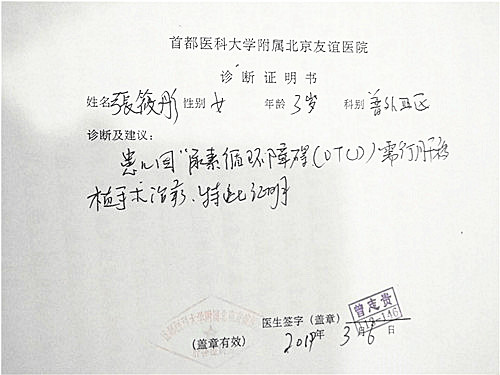 首都医科大学附属北京友谊医院
诊断证明书
姓名 張筱彤 性别 女 年龄 3岁 科别 普外四区
诊断及建议：
患儿因“尿素循环障碍(OTCD)”需行肝移
植手术治疗、特此证明
医生签字（盖章） 曾志贵
（盖章有效） 2018年3月6日